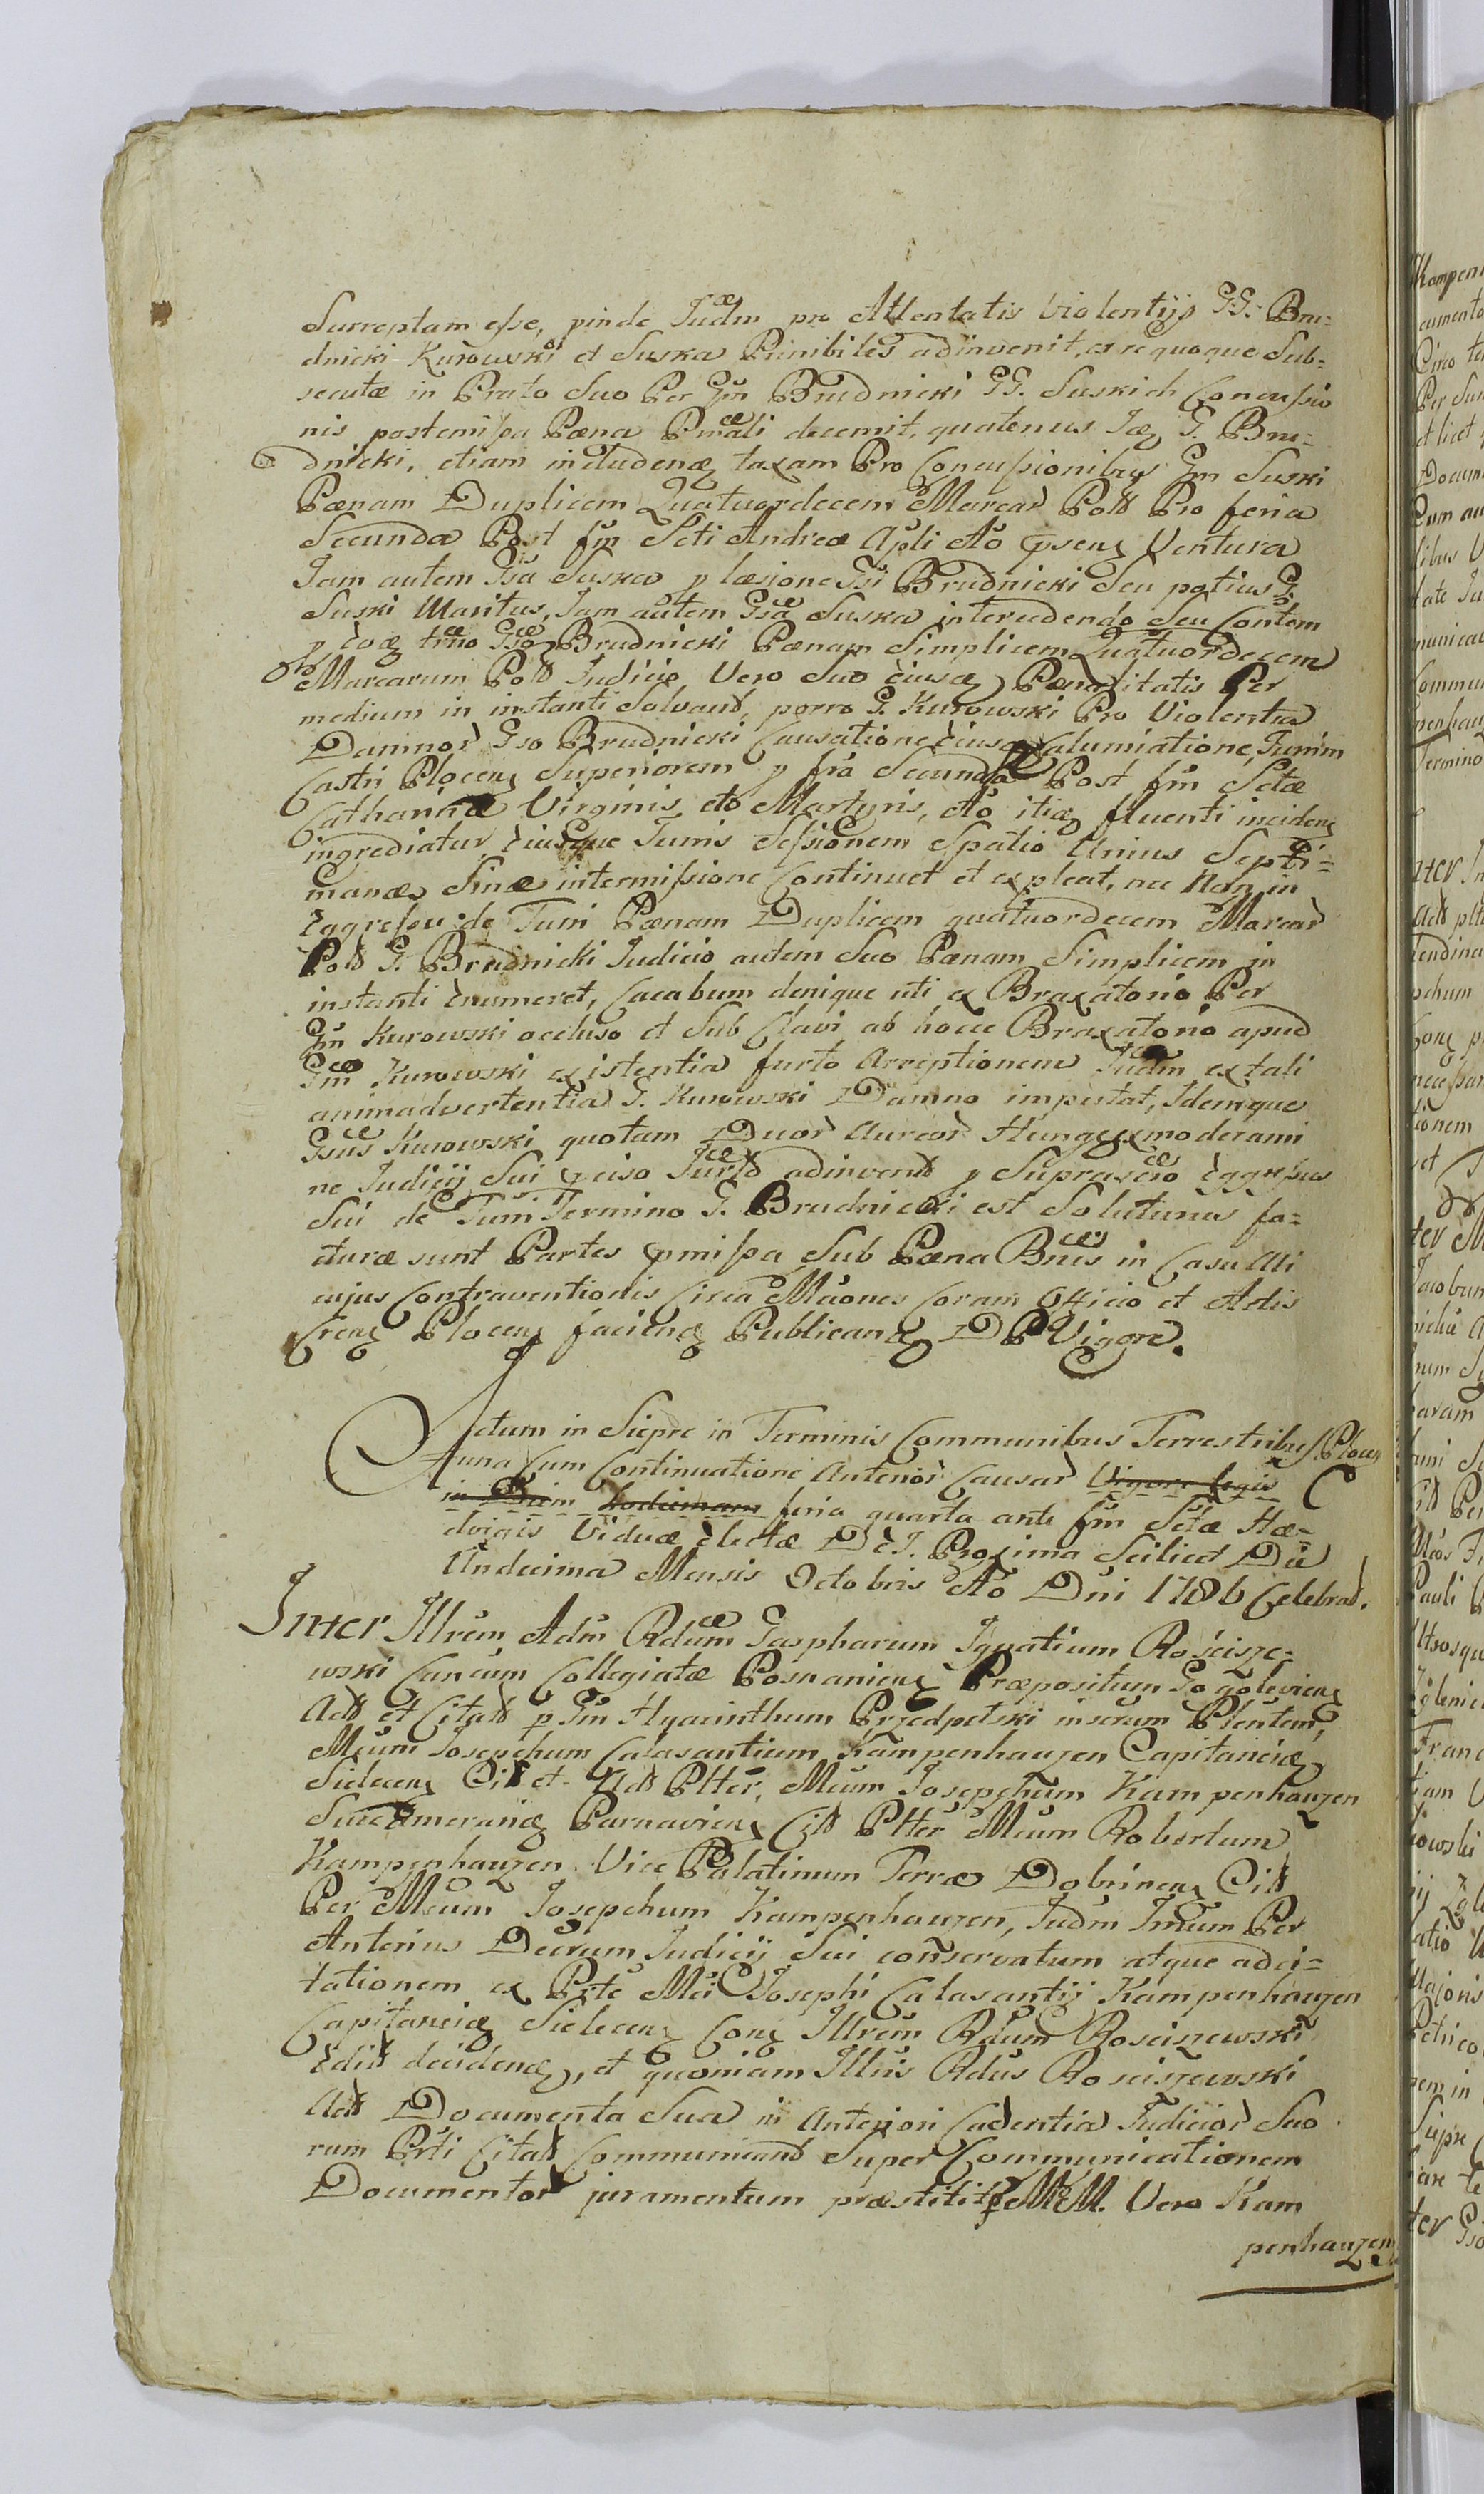 Surreptam esse, pinde Judm pro Attentatis Violentijs GG. Bru-
dnicki Kurowski et Suska Punibiles adinvenit, ex re quoque Sub-
secutæ in Prato Suo Per Gm Brudnicki GG. Suskich Concussio
nis postemissa Pæna Pmali decernit, quatenus G. Bru-
dnicki, etiam includenq taxam Pro Concussionibus Gm Suski
Pænam Duplicem Quatuordecem Marcar Poll Pro feria
Secunda Post fm Scti Andreæ Apli Ao pseng Ventura
Jam autem Gsa Suska p læsione Gsi Brudnicki Seu potius G.
Suski Maritus, Jam autem Gsa Suska intercedendo Seu Contem
p eoq trno Gso Brudnicki Pænam Simplicem Quatuordecem
Marcarum Poll Judicio Vero Suo eiusq Pænalitatis Per
medium in instanti Solvand, porro G. Kurowski Pro Violentia
Damnor Gso Brudnicki Causatione eiusq Calumiatione, Turrim
Castri Ploceng Superiorem p fria Secunda Post fm Sctæ
Catharinæ Virginis et Martyris, Ao itiq fluenti incideng
ingrediatur eiusque Turris Sessionem Spatio Unius Septi-
manæ Sinæ intermissione Continuet et expleat, nec Non in
eggressu de Turri Pænam Duplicem quatuordecem Marcar
Poll G. Brudnicki Judicio autem Suo Pænam Simplicem in
instanti enumeret, Cacabum denique uti ex Braxatorio Per
Gm Kurowski occluso et Sub Clavi ab hocce Braxatorio apud
Gm Kurowski existentia furto Arreptionem Judm ex tali
animadvertentia G. Kurowski Damno imputat, Idemque
Gsus Kurowski quotam Duor Aureor Hung ex moderami
ne Judicij Sui adinvend p Suprascio eggressus
Sui de Turri Termino G. Brudnicki est Soluturus fa-
cturæ sunt Partes pmissa Sub Pæna Bnis in Casu Ali
cujus Contraventionis Circa Mãones Coram Officio et Actis
Creng Ploceng facieng Publicanq D P Vigore.
Actum in Siepre in Terminis Communibus Terrestribus Ploceng
Auna Cum Continuatione Anterior Causar Vigore legis
in Diem hodiernam feria quarta ante fm Sctæ Hæ-
dvigis Viduæ Electæ D et J. Proxima Scilicet Die
Undecima Mensis Octobris Ao Dni 1786 Celebrad.
Inter Illrem Adm Rdum Gaspharum Ignatium Rościsze-
wski Cancum Collegiatæ Posnanieng Præpositum Gogolevieng
Act et Citatt p Gm Hyacinthum Przedpelski inserum Plentem,
Meum Josephum Calasantium Kampenhauzen Capitaneiq
Sieleceng Cit et Act Ptter, Meum Josepchum Kampenhauzen
Succameraniq Parnavieng Citt Ptter Meum Robertum
Kampenhauzen Vice Palatinum Terræ Dobrineng Citt
Per Meum Josepchum Kampenhauzen, Judm Pntum Per
Anterius Decrum Judicij Sui conservatum atque adci-
tationem ex Prte Mci Josephi Calasantij Kampenhauzen
Capitaneiq Sieleceng Cong Illrem Rdum Rosciszewski
edid decidenq, et quoniam Illris Rdus Rosciszewski
Act Documenta Sua in Anteriori Cadentia Judicior Suo
rum Prti Citatt Communicand Super Communicationem
Documentor juramentum præstitit MM. Vero Kam
penhauzen